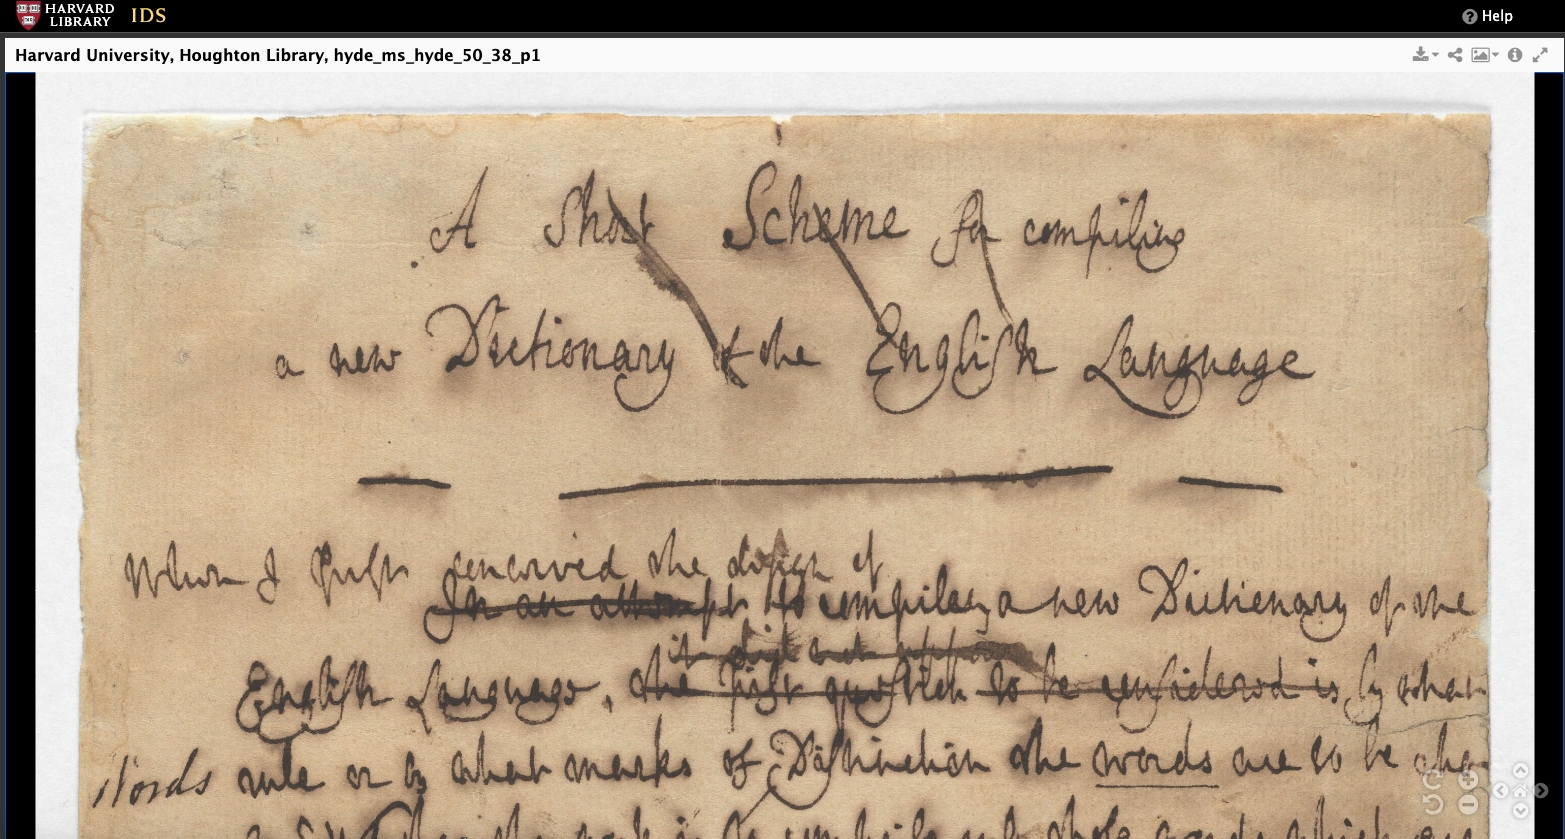 HARVARD
LIBRARY
IDS
Help
Harvard University, Houghton Library, hyde_ms_hyde_50_38_p1
A Short Scheme for compiling
a new Dictionary of the English Language
When I first conceived the design of
In an attempt to compiling a new Dictionary of the
it did not
English Language, the first question to be considered is by what
rule or by what marks of Distinction the words are to be
Words